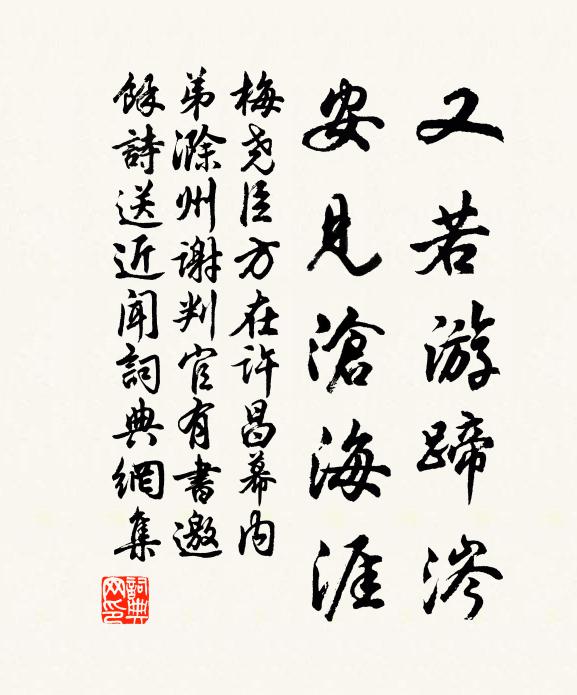 又若游蹄涔
安見滄海涯
梅尧臣方在許昌幕内
弟滁州谢判官有書邀
余詩送近聞詞典網集
詞典
网印